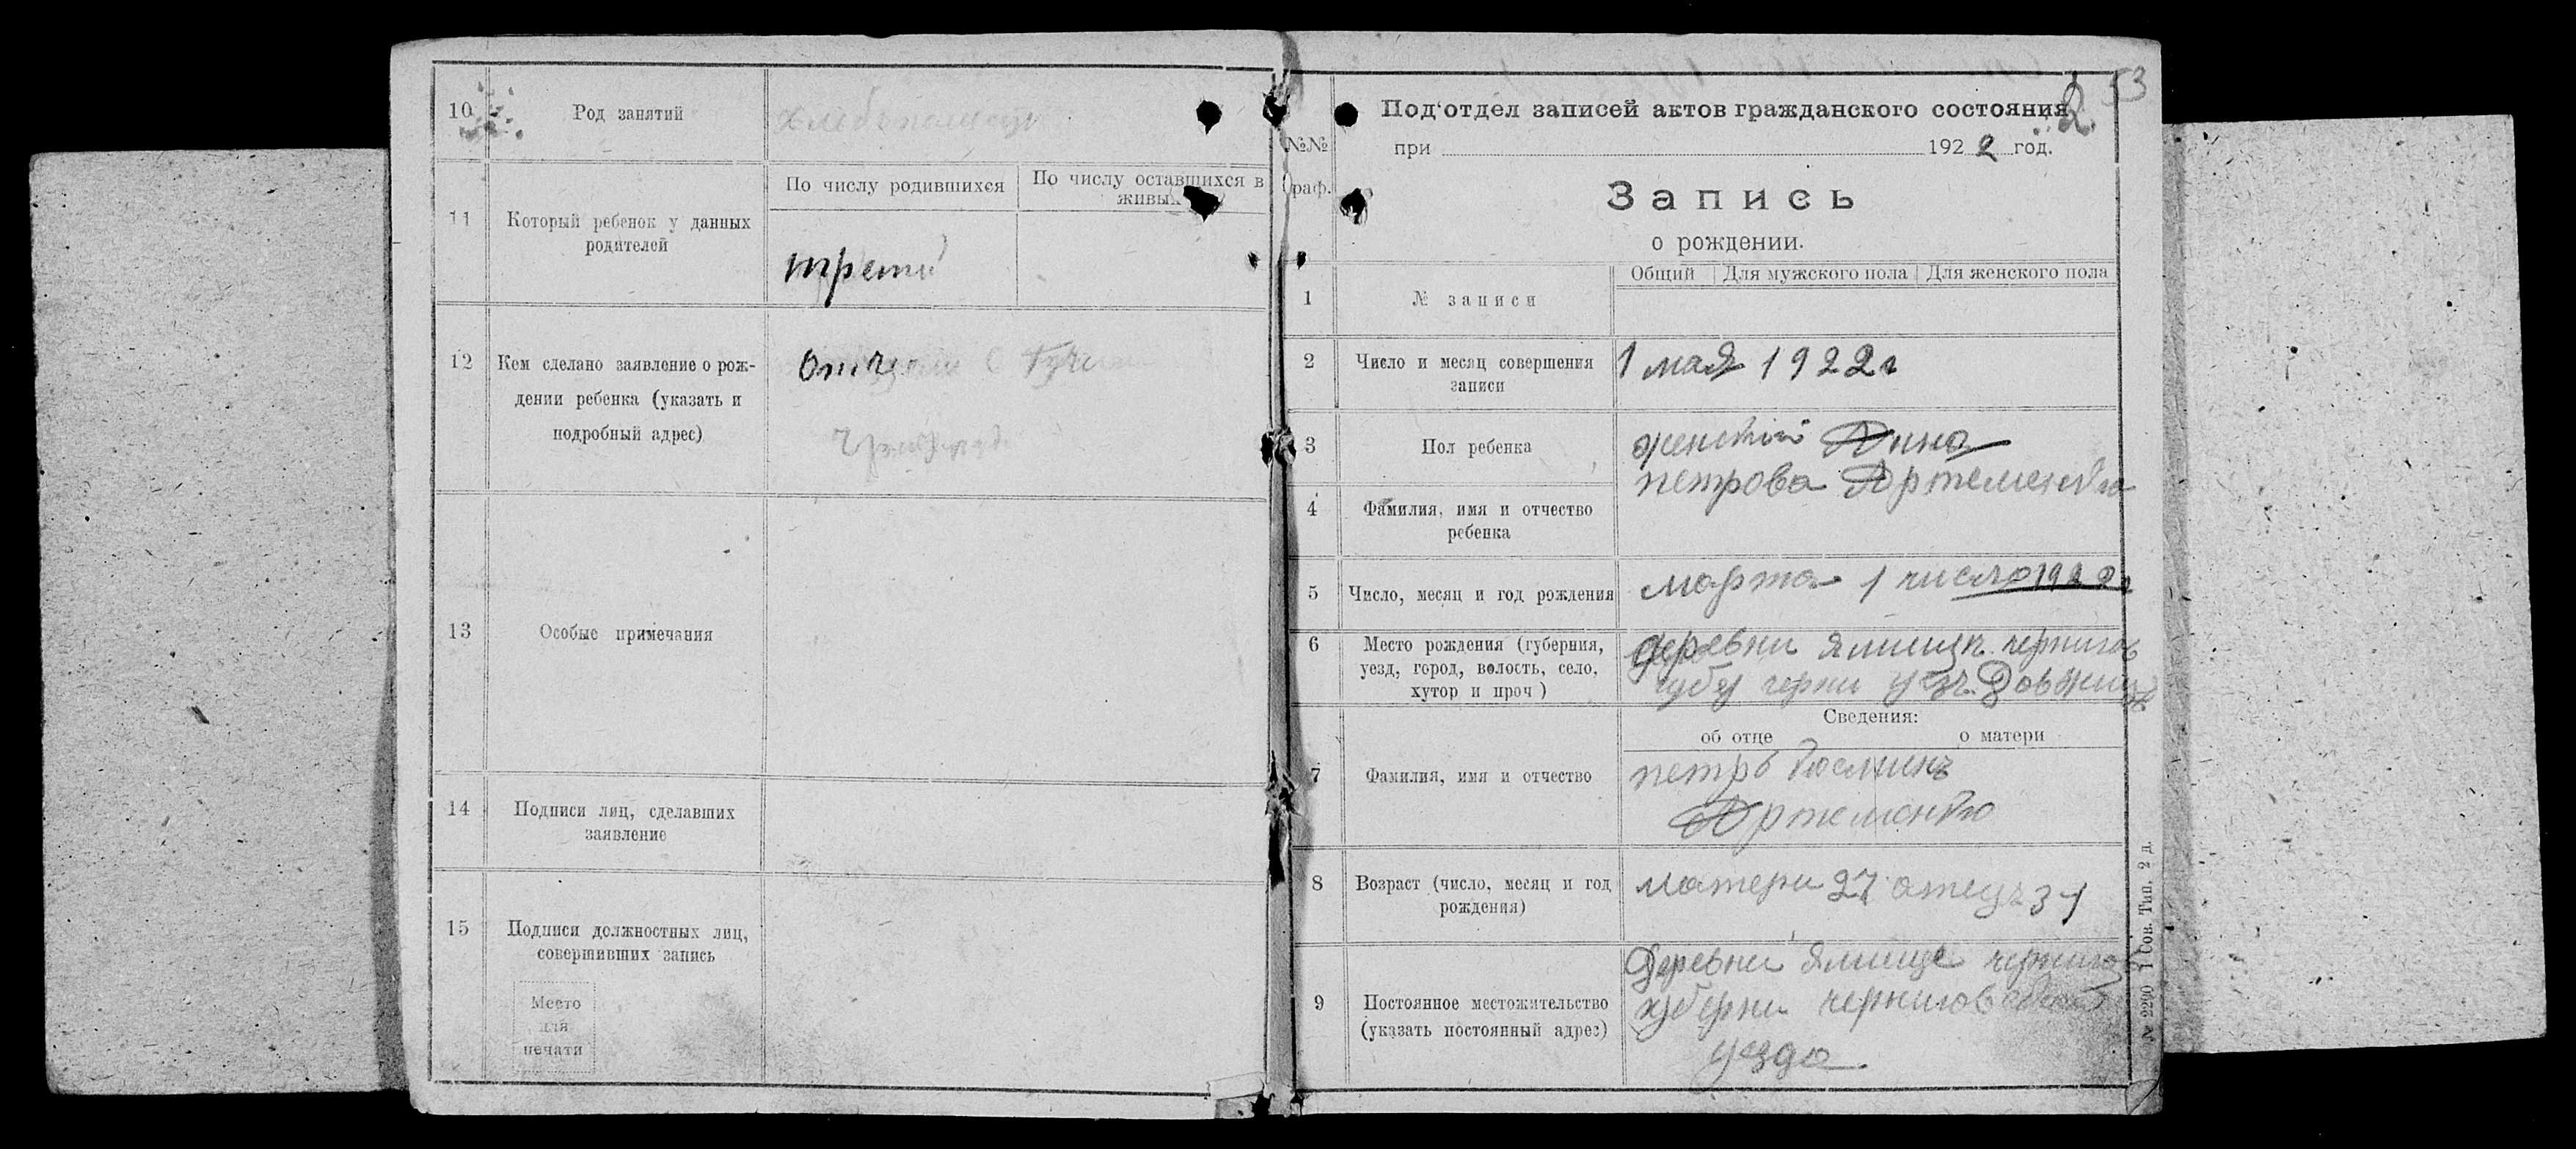 10
Род занятий
11
Который ребенок у данных
родителей
По числу родившихся
По числу оставшихся в
живых
трети
12
Кем сделано заявление о рож-
дении ребенка (указать и
подробный адрес)
13
Особые примечания
14
Подписи лиц, сделавших
заявление
15
Подписи должностных лиц,
совершивших запись
Место
для
печати
53
Под'отдел записей актов гражданского состояния
№№
при 1922 год.
граф.
Запись
о рождении.
Общий Для мужского пола Для женского пола
1
№ записи
2
Число и месяц совершения
записи
1 мая 1922 г
3
Пол ребенка
женский Анна
петрова Артеменко
4
Фамилия, имя и отчество
ребенка
5
Число, месяц и год рождения
марта 1 число 1922 г
6
Место рождения (губерния,
уезд, город, волость, село,
хутор и проч )
деревни
Сведения:
об отце о матери
7
Фамилия, имя и отчество
петръ
Артеменко
8
Возраст (число, месяц и год
рождения)
матери 27 отецъ 31
9
Постоянное местожительство
(указать постоянный адрес)
Деревни
губерни
уезда
№ 2290 1 Сов. Тип. 2 д.